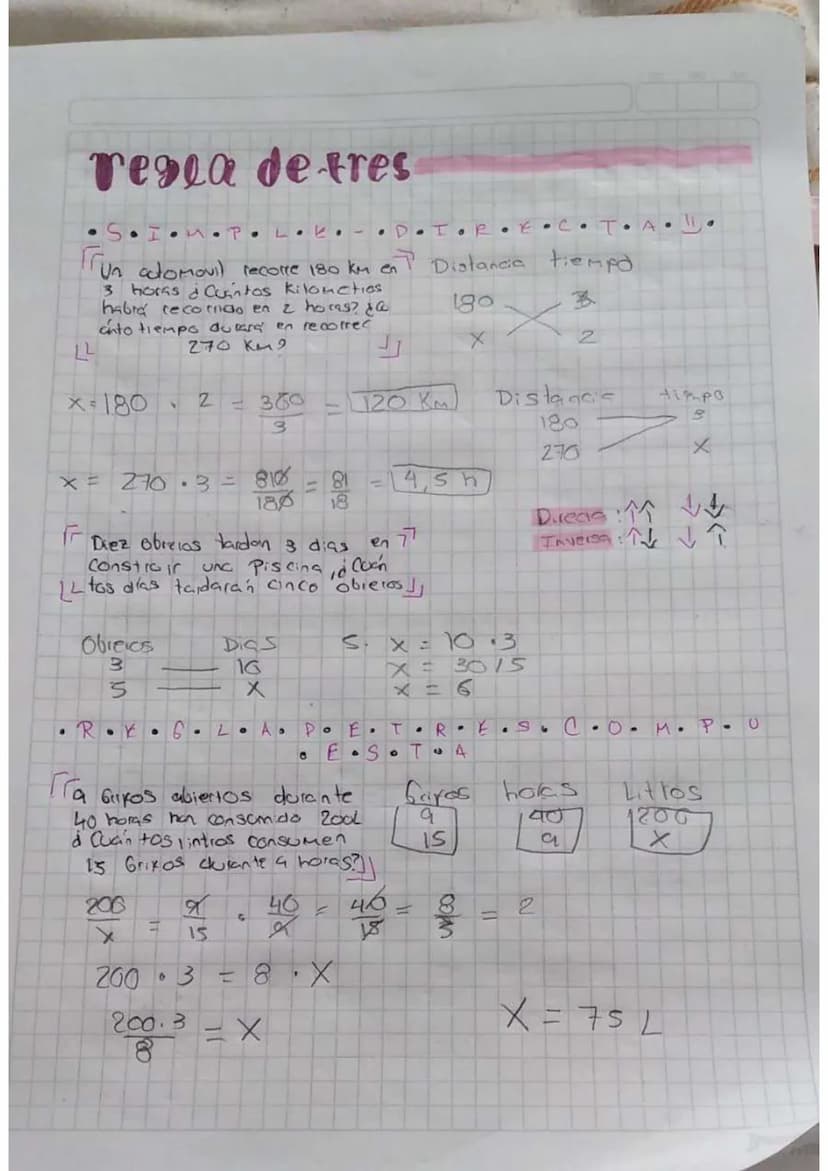 regla de tres
• S • I • M • P • L • E • - • D • I • R • E • C • T • A • !! •
Un automovil recorre 180 km en
3 horas ¿Cuántos Kilometros
habrá recorrido en 2 horas? ¿a
cnto tiempo durará en recorrer
270 Km?
Distancia tiempo
180 3
x 2
x = 180 . 2 = 360/3 = 120 Km
Distancia tiempo
180 3
270 x
x = 270 . 3 = 810/180 = 81/18 = 4,5 h
Directa : ↑↑ ↓↓
Inversa : ↑↓ ↓↑
Diez obreros tardan 3 dias en
construir una Piscina, ¿Cuan
tos días tardarán cinco obreros
Obreros Dias
3 — 10
5 — x
5. x = 10 . 3
x = 30/5
x = 6
• R • E • G • L • A • D • E • T • R • E • S • C • O • M • P • U
• E • S • T • A
9 Grifos abiertos durante
40 horas han consumido 200l
¿Cuántos lintros consumen
15 Grifos durante 9 horas?
Grifos horas Litros
9 40 200
15 9 x
200/x = 9/15 . 40/9 = 40/15 = 8/3 = 2
200 . 3 = 8 . x
200.3/8 = x
x = 75 L